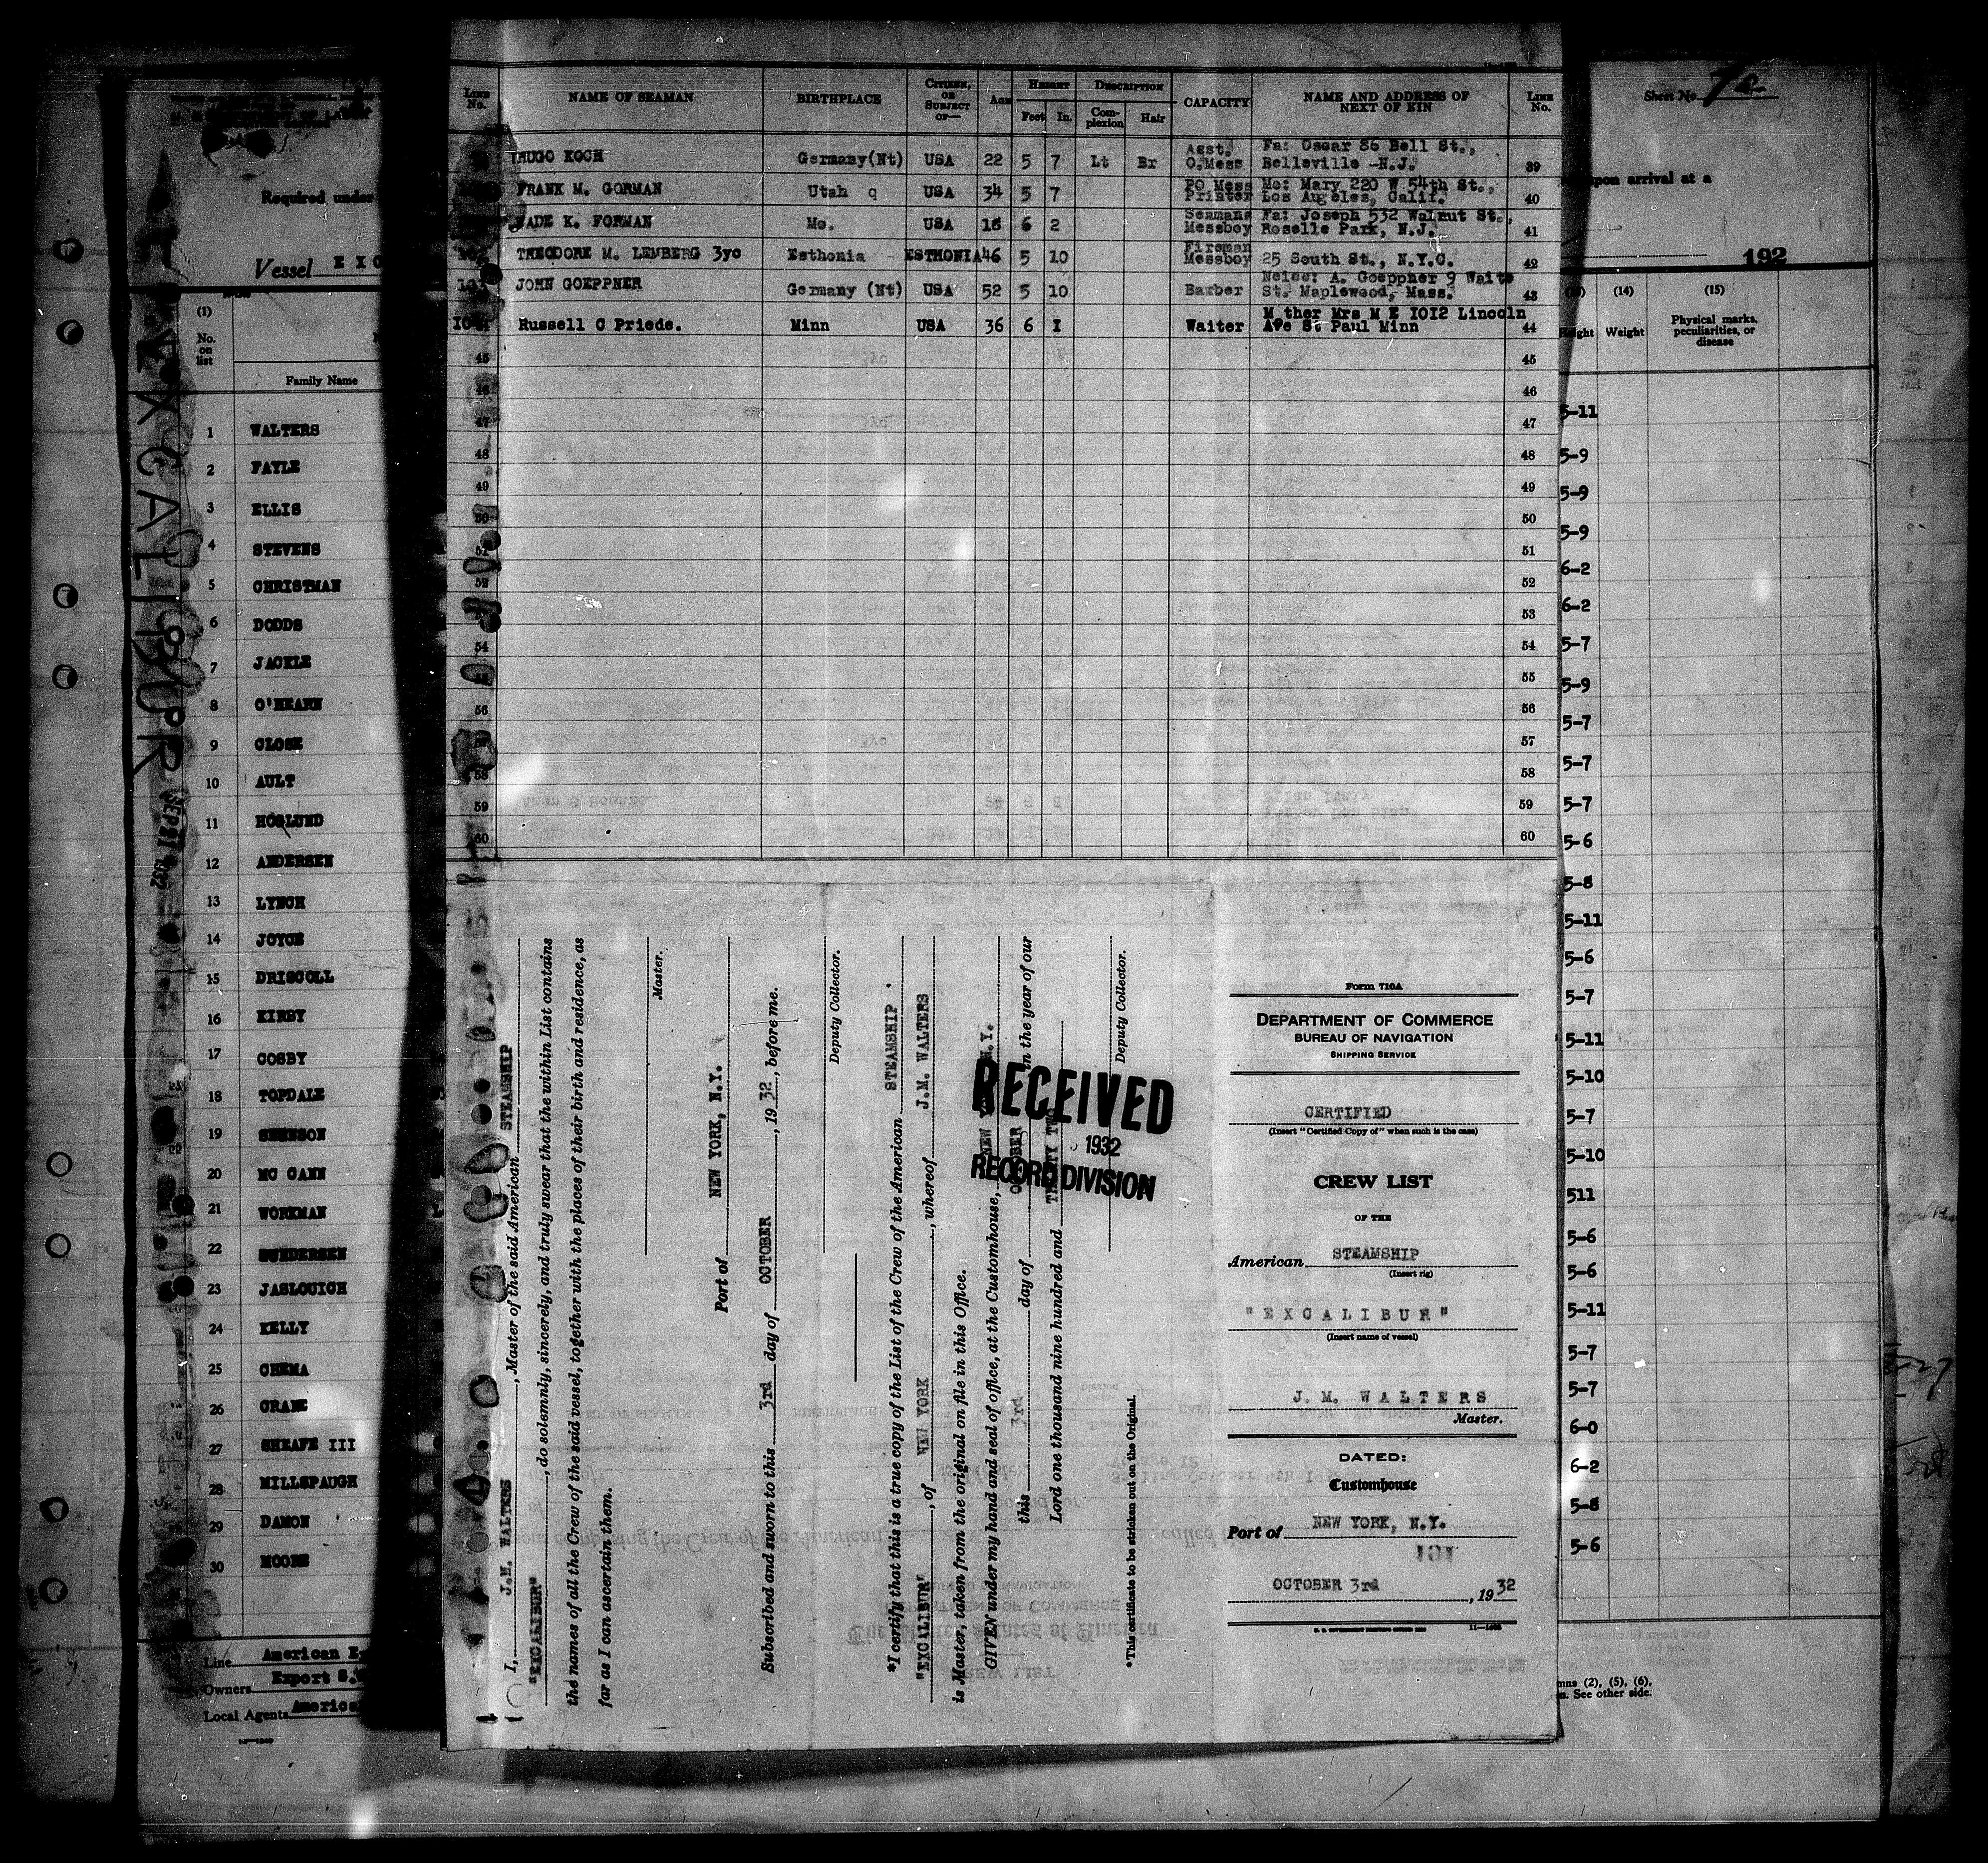 LINE No. NAME OF SEAMAN BIRTHPLACE CITIZEN, OR SUBJECT OF— AGE HEIGHT Feet In. DESCRIPTION Complexion Hair CAPACITY NAME AND ADDRESS OF NEXT OF KIN LINE No.
HUGO KOCH Germany(Nt) USA 22 5 7 Lt Br Asst. O.Mess Fa: Oscar 86 Bell St., Belleville -N.J. 39
FRANK M. GORMAN Utah q USA 34 5 7 PO Mess Printer Mo: Mary 220 W 54th St., Los Angeles, Calif. 40
WADE K. FORMAN Mo. USA 18 6 2 Seamans Messboy Fa: Joseph 532 Walnut St., Roselle Park, N.J. 41
THEODORE M. LEMBERG 3yo Esthonia ESTHONIA 46 5 10 Fireman Messboy 25 South St., N.Y.C. 42
JOHN GOEPPNER Germany (Nt) USA 52 5 10 Barber Neice: A. Goeppner 9 Waite St. Maplewood, Mass. 43
Russell C Priede. Minn USA 36 6 I Waiter M ther Mrs M E IOI2 Lincoln Ave St Paul Minn 44
45 45
46 46
47 47
48 48
49 49
50 50
51 51
52 52
53
54 54
55
56 56
57
58 58
59 59
60 60
Sheet No.
Required under
upon arrival at a
Vessel E X C
192
(1) (14) (15)
No. on list
Family Name
Height Weight Physical marks, peculiarities, or disease
EXCALIBUR
1 WALTERS 5-11
2 FAYLE 5-9
3 ELLIS 5-9
4 STEVENS 5-9
5 CHRISTMAN 6-2
6 DODDS 6-2
7 JACKLE 5-7
8 O'HEARN 5-9
9 CLOSE 5-7
10 AULT 5-7
11 HOGLUND 5-7
12 ANDERSEN 5-6
13 LYNCH 5-8
14 JOYCE 5-11
15 DRISCOLL 5-6
16 KIRBY 5-7
17 COSBY 5-11
18 TOPDALE 5-10
19 SWENSON 5-7
20 MC CANN 5-10
21 WORKMAN 511
22 GUNDERSEN 5-6
23 JASLOUICH 5-6
24 KELLY 5-11
25 CHEMA 5-7
26 CRANE 5-7
27 SHEAFE III 6-0
28 MILLSPAUGH 6-2
29 DAMON 5-8
30 MOORE 5-6
Line American E
Owners Export S.
Local Agents America
mns (2), (5), (6),
n. See other side.
I, J.M. WALTERS, Master of the said American STEAMSHIP
"EXCALIBUR", do solemnly, sincerely, and truly swear that the within List contains
the names of all the Crew of the said vessel, together with the places of their birth and residence, as
far as I can ascertain them.
Master.
Port of NEW YORK, N.Y.
Subscribed and sworn to this 3rd day of OCTOBER, 1932, before me.
Deputy Collector.
*I certify that this is a true copy of the List of the Crew of the American STEAMSHIP
"EXCALIBUR", of NEW YORK, whereof J.M. WALTERS
is Master, taken from the original on file in this Office.
GIVEN under my hand and seal of office, at the Customhouse, NEW YORK, N.Y.
this 3rd day of OCTOBER in the year of our
Lord one thousand nine hundred and THIRTY TWO
Deputy Collector.
*This certificate to be stricken out on the Original.
RECEIVED
1932
RECORD DIVISION
Form 710A
DEPARTMENT OF COMMERCE
BUREAU OF NAVIGATION
SHIPPING SERVICE
CERTIFIED
(Insert "Certified Copy of" when such is the case)
CREW LIST
OF THE
American STEAMSHIP
(Insert rig)
"EXCALIBUR"
(Insert name of vessel)
J. M. WALTERS
Master.
DATED:
Customhouse
Port of NEW YORK, N.Y.
OCTOBER 3rd, 1932